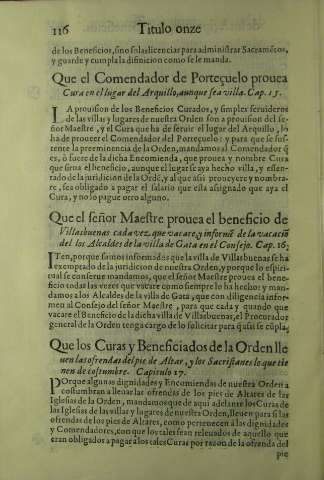 116 Titulo onze
de los Beneficios, sino solas licencias para administrar Sacramẽtos,
y guarde y cumpla la difinicion como se le manda.
Que el Comendador de Porteçuelo prouea
Cura en el lugar del Arquillo, aunque sea villa. Cap. 15.
LA prouision de los Beneficios Curados, y simples seruideros
de las villas y lugares de nuestra Orden son a prouision del se-
ñor Maestre, y el Cura que ha de seruir el lugar del Arquillo, lo
ha de proueer el Comendador del Porteçuelo: y para que se sus-
tente la preeminencia de la Orden, mandamos al Comendador q̃
es, ò fuere de la dicha Encomienda, que prouea y nombre Cura
que sirua el beneficio, aunque el lugar se aya hecho villa, y essen-
tado de la juridicion de la Ordẽ, y al que assi proueyere y nombra-
re, sea obligado a pagar el salario que esta asignado que aya el
Cura, y no lo pague otro alguno.
Que el señor Maestre prouea el beneficio de
Villasbuenas cada vez que vacare, y informẽ de la vacaciõ
del los Alcaldes de la villa de Gata en el Consejo. Cap. 16.
ITen, porque somos informados que la villa de Villasbuenas se ha
exemptado de la juridicion de nuestra Orden, y porque lo espiri-
tual se conserue mandamos, que el señor Maestre prouea el bene-
ficio todas las vezes que vacare como siempre lo ha hecho: y man-
damos a los Alcaldes de la villa de Gata, que con diligencia infor-
men al Consejo del señor Maestre, para que cada y quando que
vacare el Beneficio de la dicha villa de Villasbuenas, el Procurador
general de la Orden tenga cargo de lo solicitar para q̃ assi se cũpla.
Que los Curas y Beneficiados de la Orden lle
uen las ofrendas del pie de Altar, y los Sacristanes lo que tie
nen de costumbre. Capitulo 17.
POrque algunas dignidades y Encomiendas de nuestra Orden a
costumbran a lleuar las ofrendas de los pies de Altares de las
Iglesias de la Orden, mandamos que de aqui adelante los Curas de
las Iglesias de las villas y lugares de nuestra Orden, lleuen para si las
ofrendas de los pies de Altares, como pertenecen a las dignidades
y Comendadores, con que los tales sean releuados de aquello que
eran obligados a pagar a los tales Curas por razon de la ofrenda del
pie